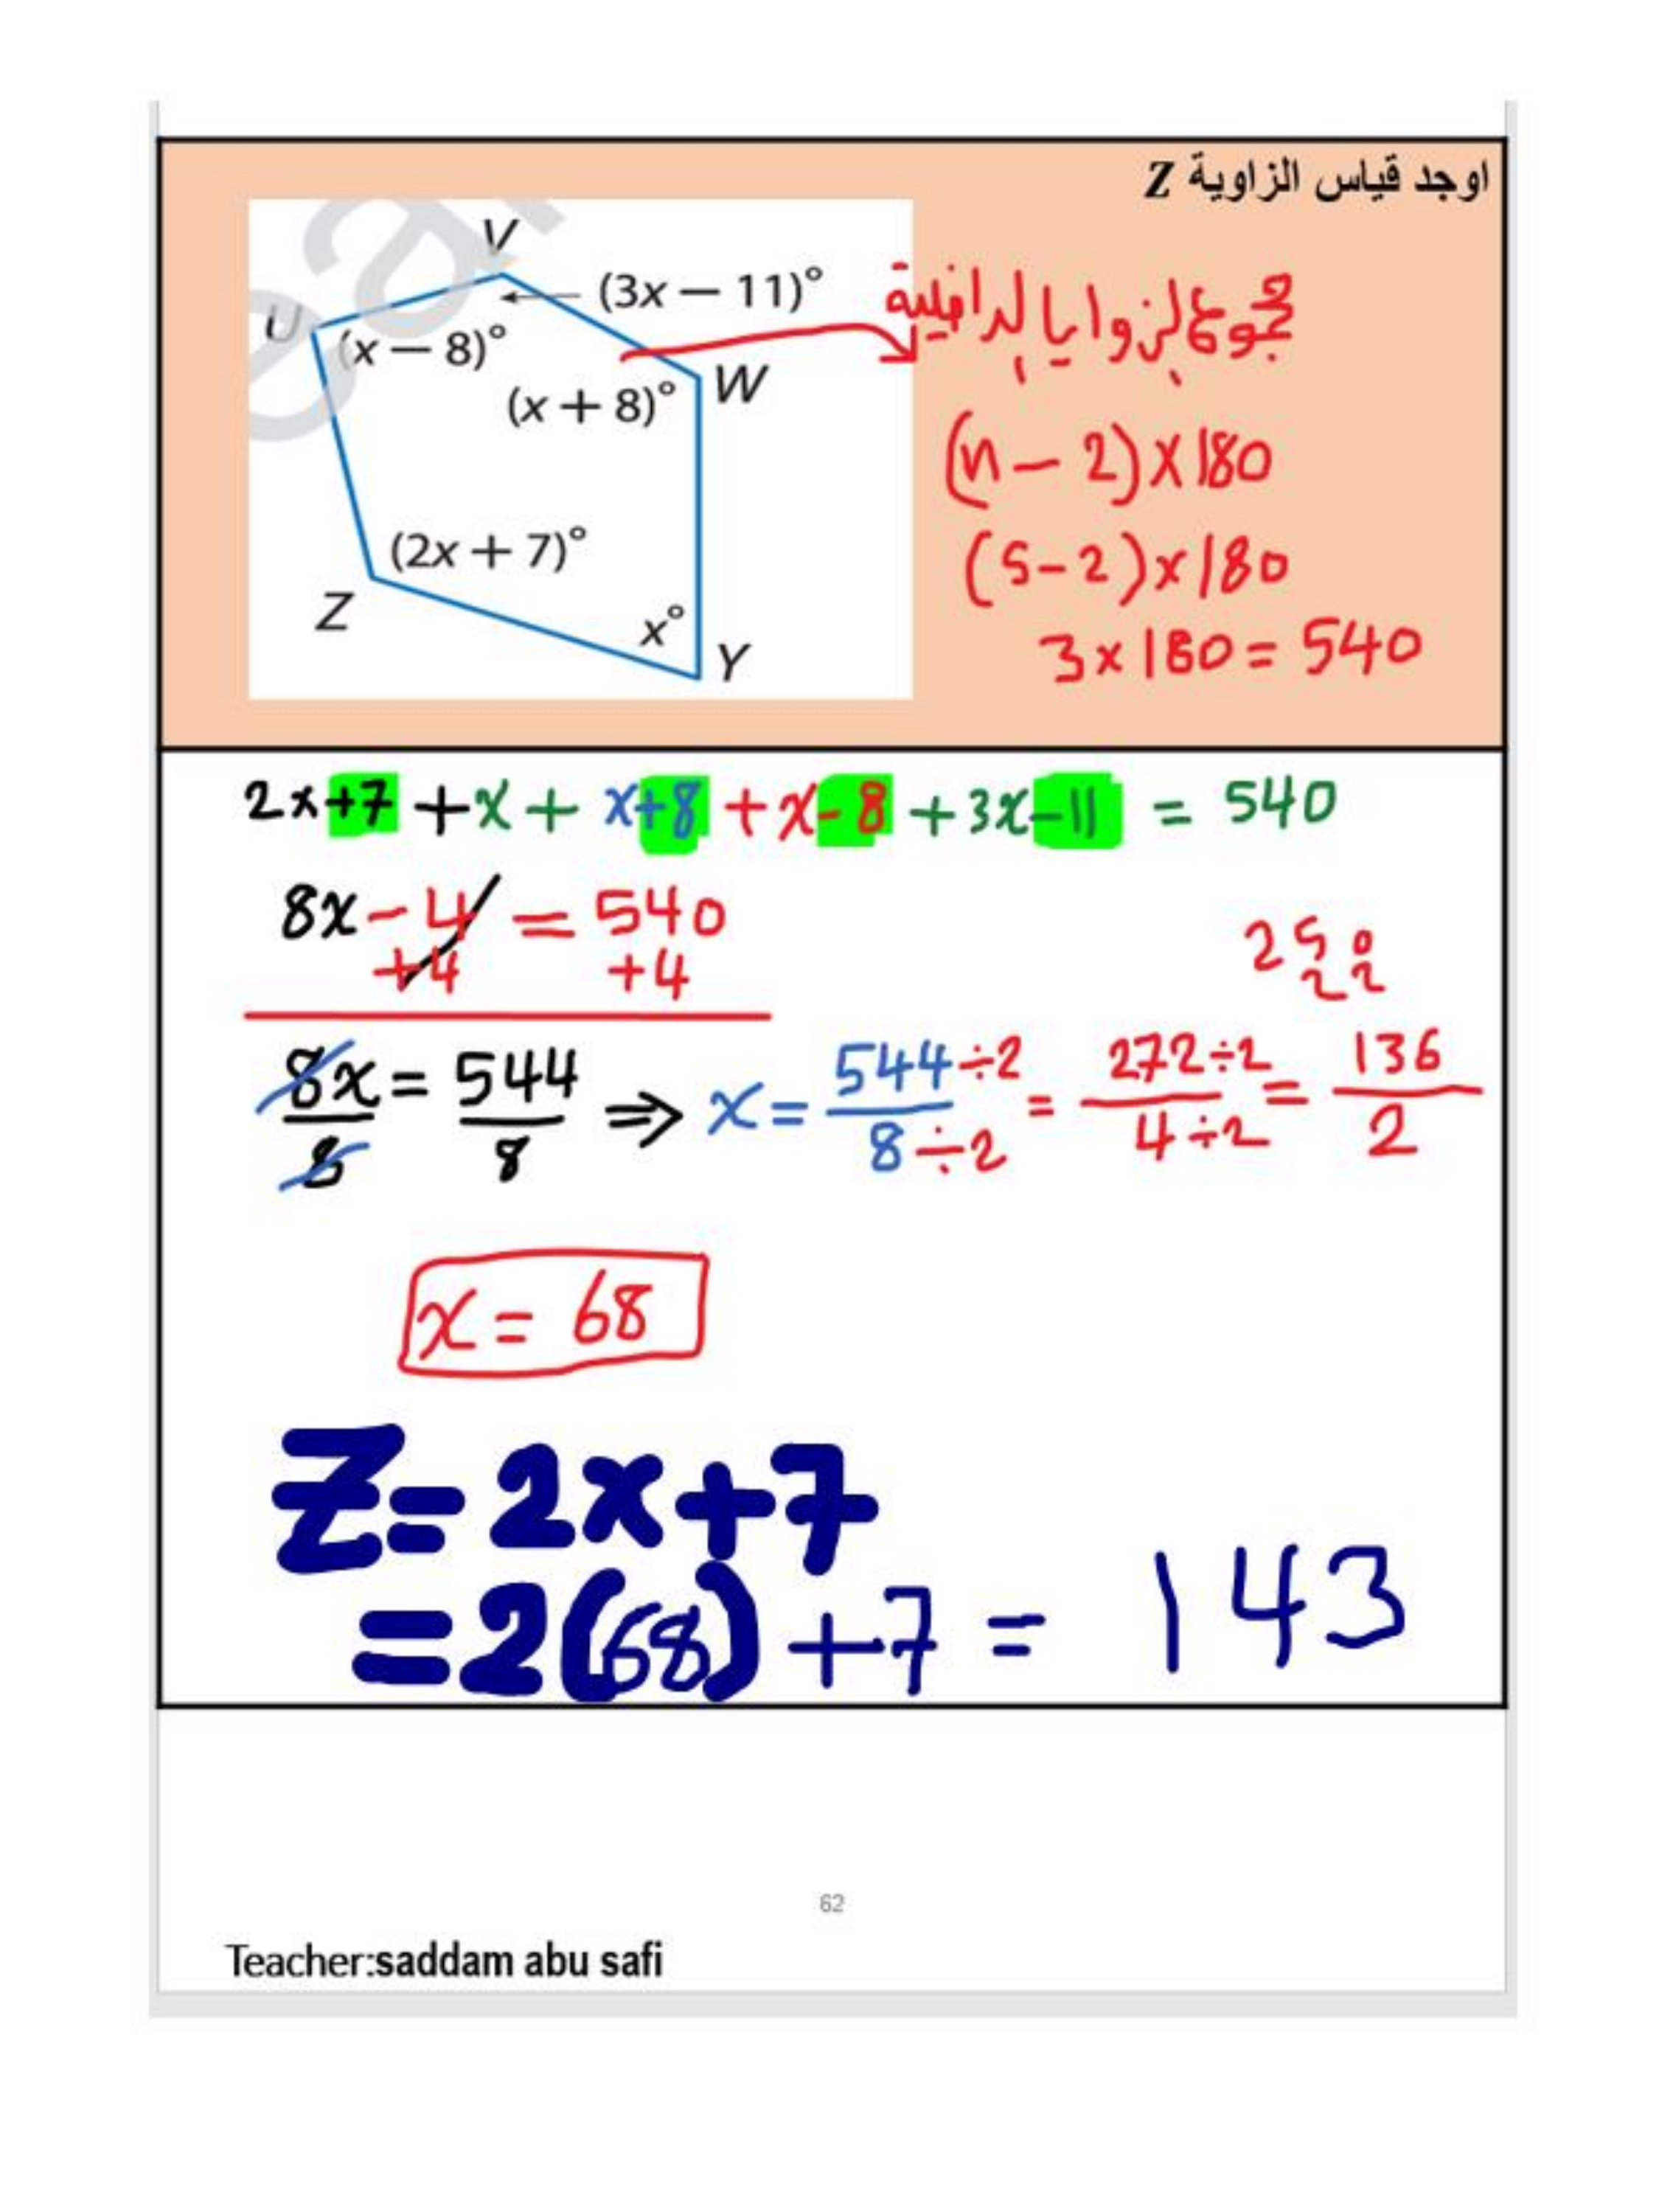 اوجد قياس الزاوية Z
V
(3x − 11)°
U
(x − 8)°
W
(x + 8)°
(2x + 7)°
Z
x°
Y
مجموع الزوايا الداخلية
(n − 2) × 180
(5 − 2) × 180
3 × 180 = 540
2x+7 + x + x+8 + x-8 + 3x-11 = 540
8x - 4 = 540
+4 +4
8x/8 = 544/8 ⇒ x = 544÷2/8÷2 = 272÷2/4÷2 = 136/2
x = 68
Z = 2x+7
= 2(68) + 7 = 143
62
Teacher:saddam abu safi